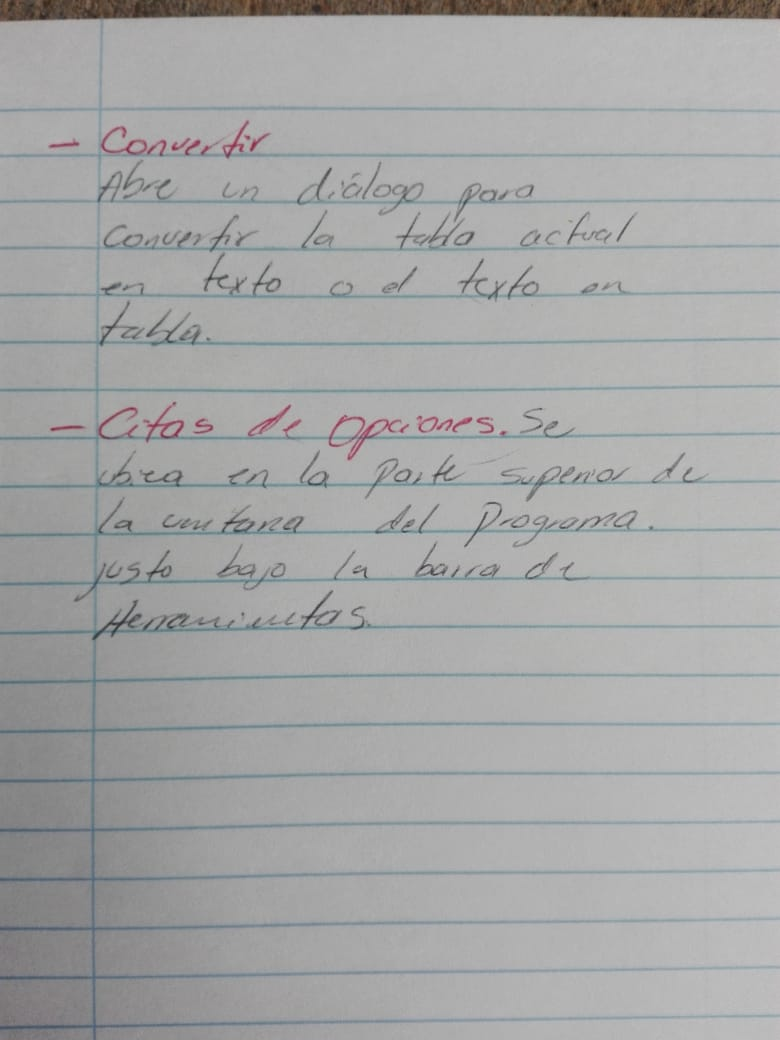 - Convertir
Abre un diálogo para
convertir la tabla actual
en texto o el texto en
tabla.
- Citas de opciones. Se
ubica en la Parte superior de
la ventana del Programa.
justo bajo la barra de
Herramientas.